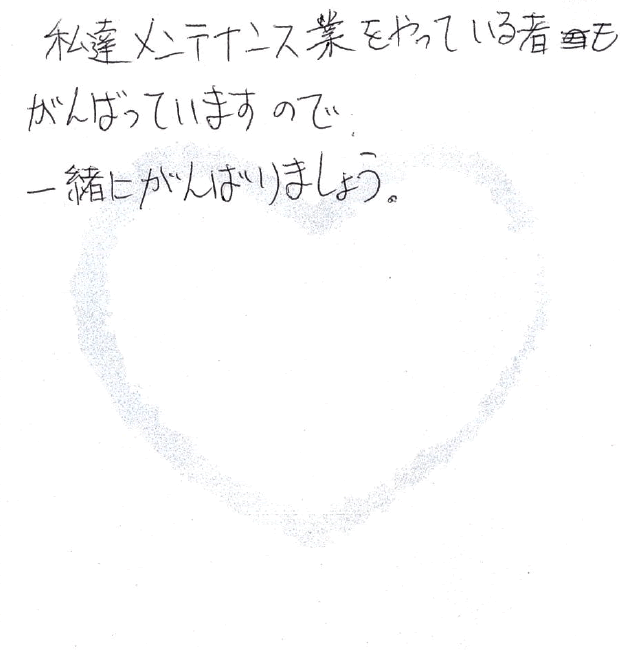 私達メンテナンス業をやっている者も
がんばっていますので、
一緒にがんばりましょう。